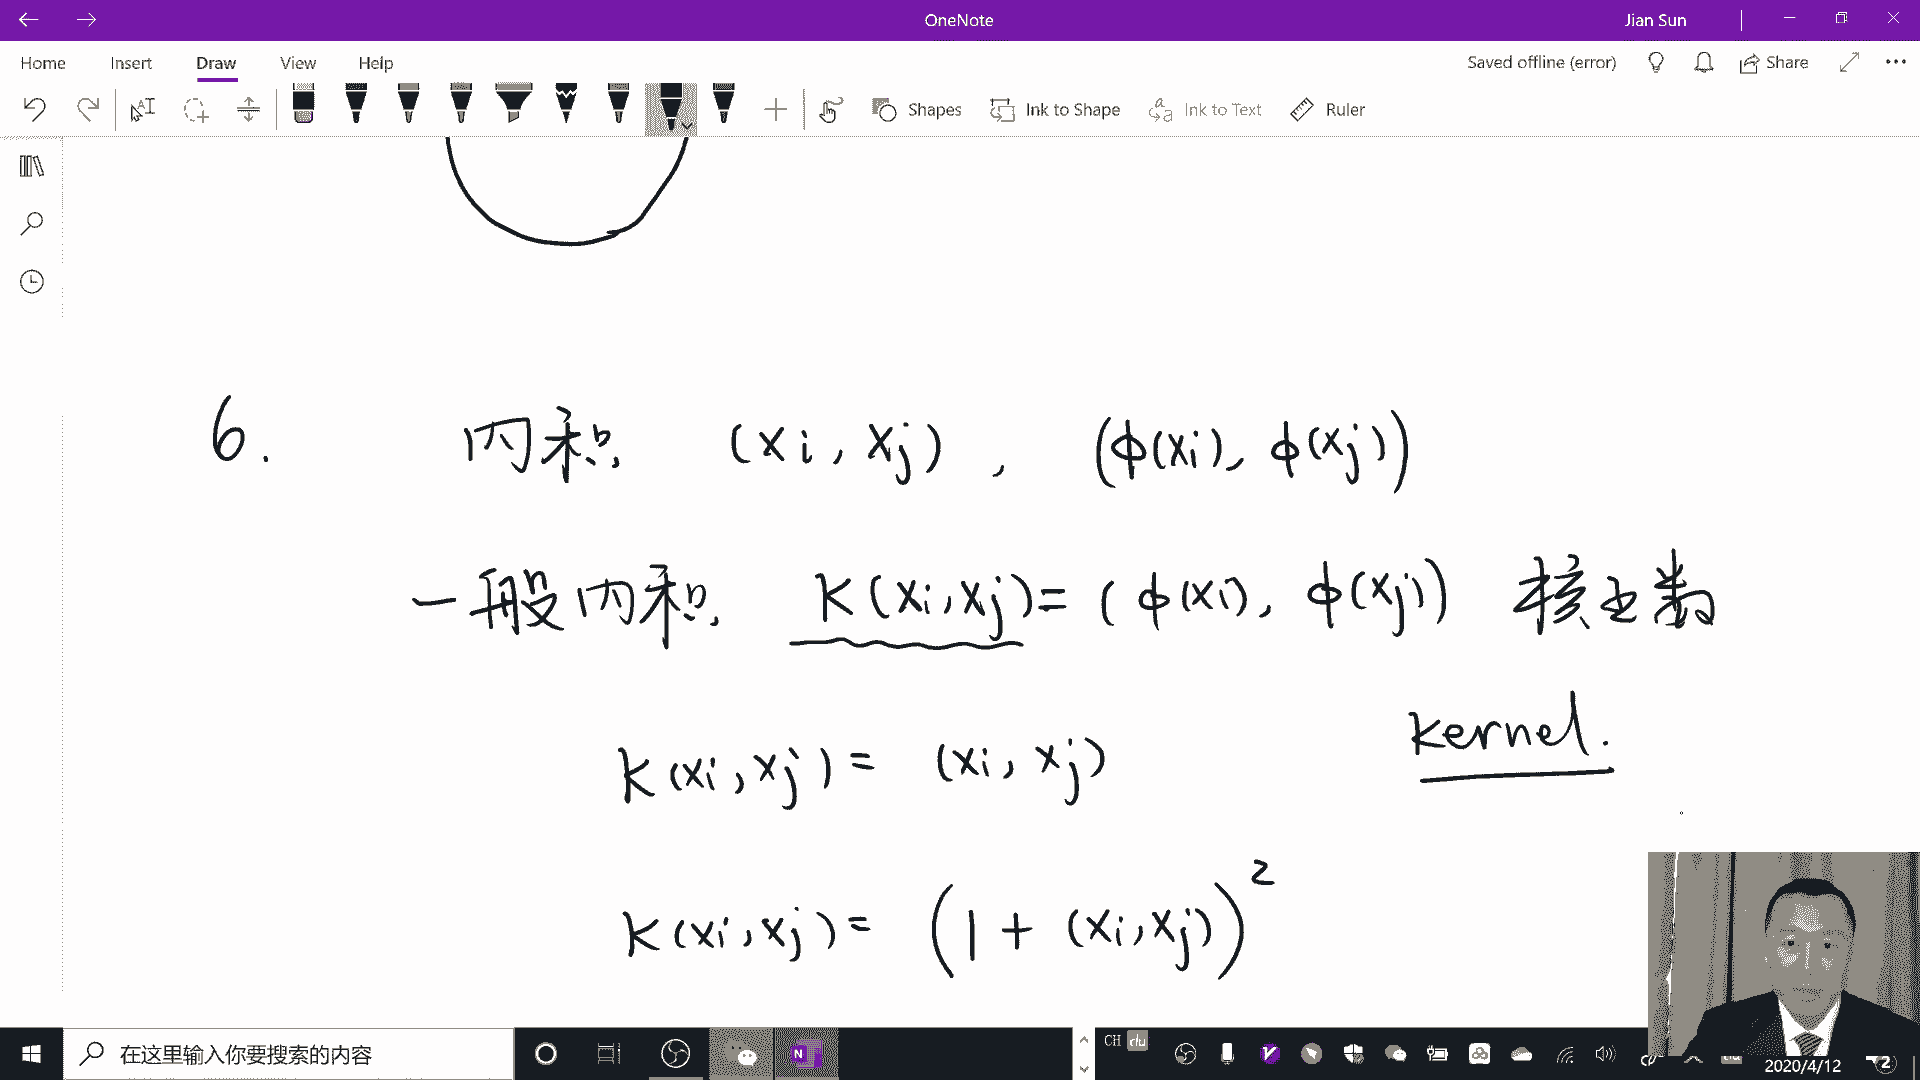 OneNote
Jian Sun
Home Insert Draw View Help
Saved offline (error) Share
Shapes Ink to Shape Ink to Text Ruler
6. 内积 (xi, xj), (ϕ(xi), ϕ(xj))
一般内积 K(xi, xj) = (ϕ(xi), ϕ(xj)) 核函数
kernel.
K(xi, xj) = (xi, xj)
K(xi, xj) = (1 + (xi, xj))²
在这里输入你要搜索的内容
CH
2020/4/12
2